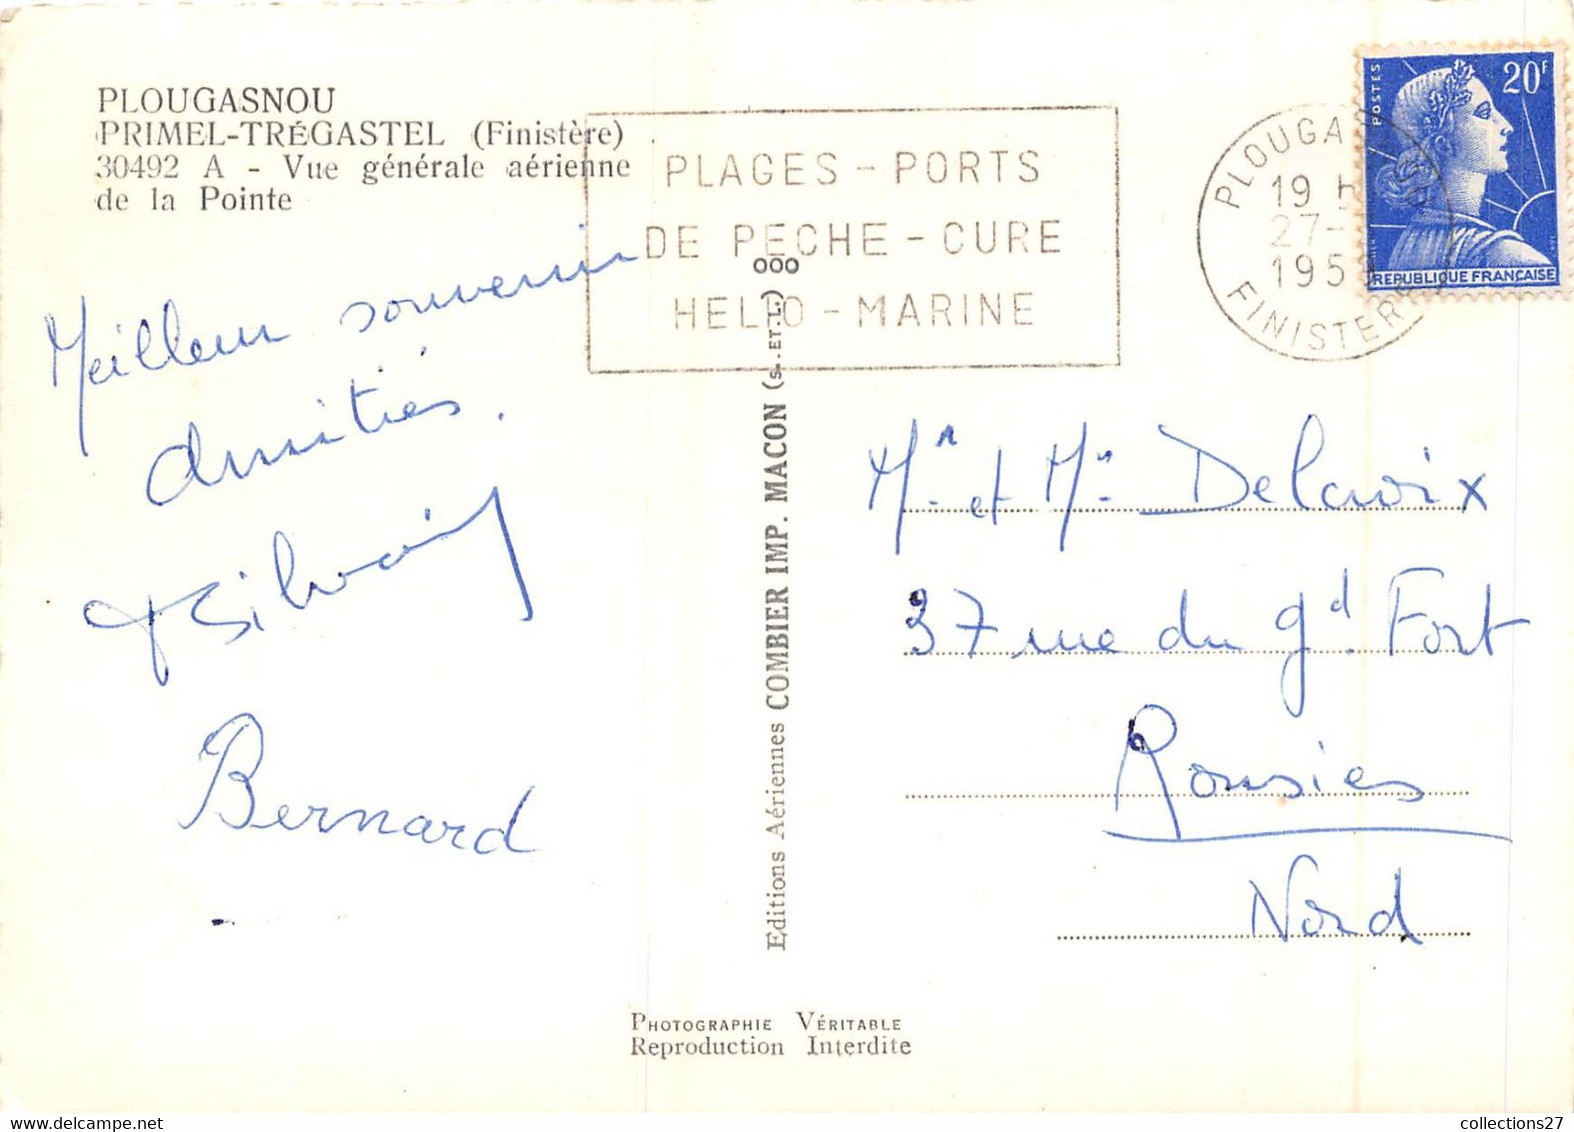 PLOUGASNOU
PRIMEL-TRÉGASTEL (Finistère)
30492 A - Vue générale aérienne
de la Pointe
PLAGES - PORTS
DE PECHE - CURE
HELIO - MARINE
PLOUGASNOU
19 H
27-
195
FINISTERE
POSTES
20F
REPUBLIQUE FRANÇAISE
Meilleur souvenir
amitiés.
Bernard
Editions Aériennes COMBIER IMP. MACON (S.-ET-L.) OOO
Mr et Me Delcroix
37 rue du gd. Fort
Rousies
Nord
PHOTOGRAPHIE VÉRITABLE
Reproduction Interdite
collections27